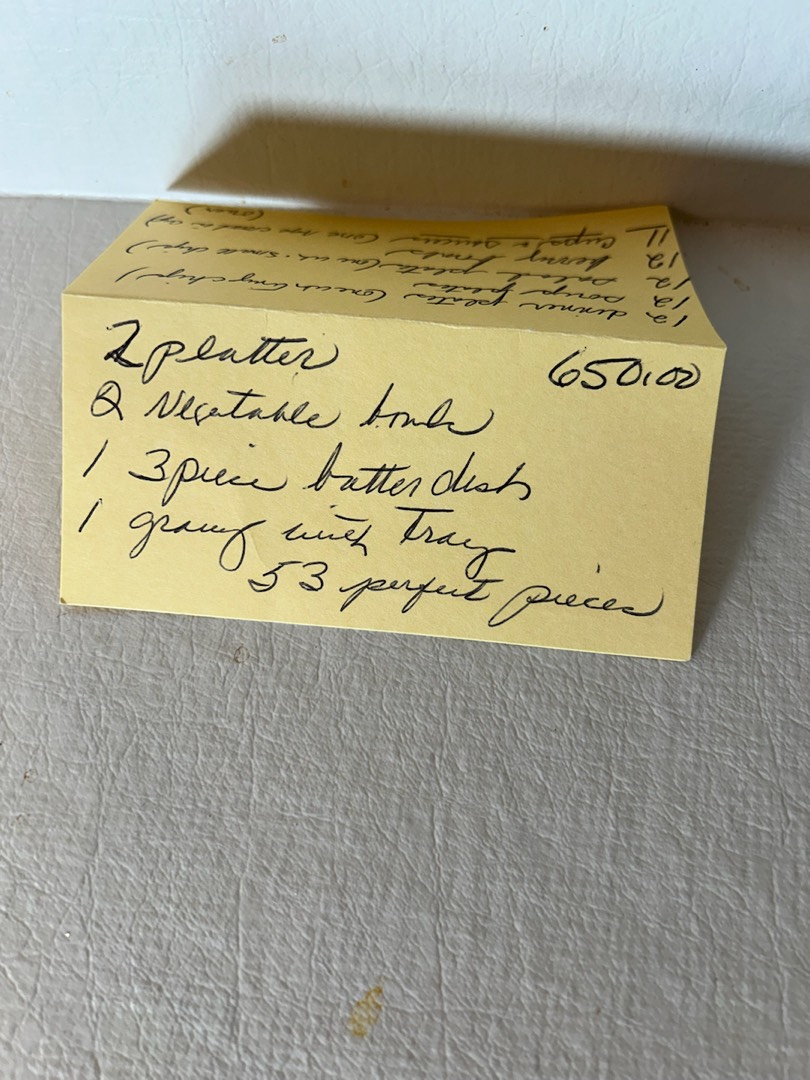 12 dinner plates (one w/tiny chip)
12 soup plates
12 salad plates (one w. small chip)
12 berry bowls
11 cups + saucers (one has crack in cup)
(over)
2 platter 650.00
2 Vegetable bowls
1 3 piece butter dish
1 gravy with Tray
53 perfect pieces